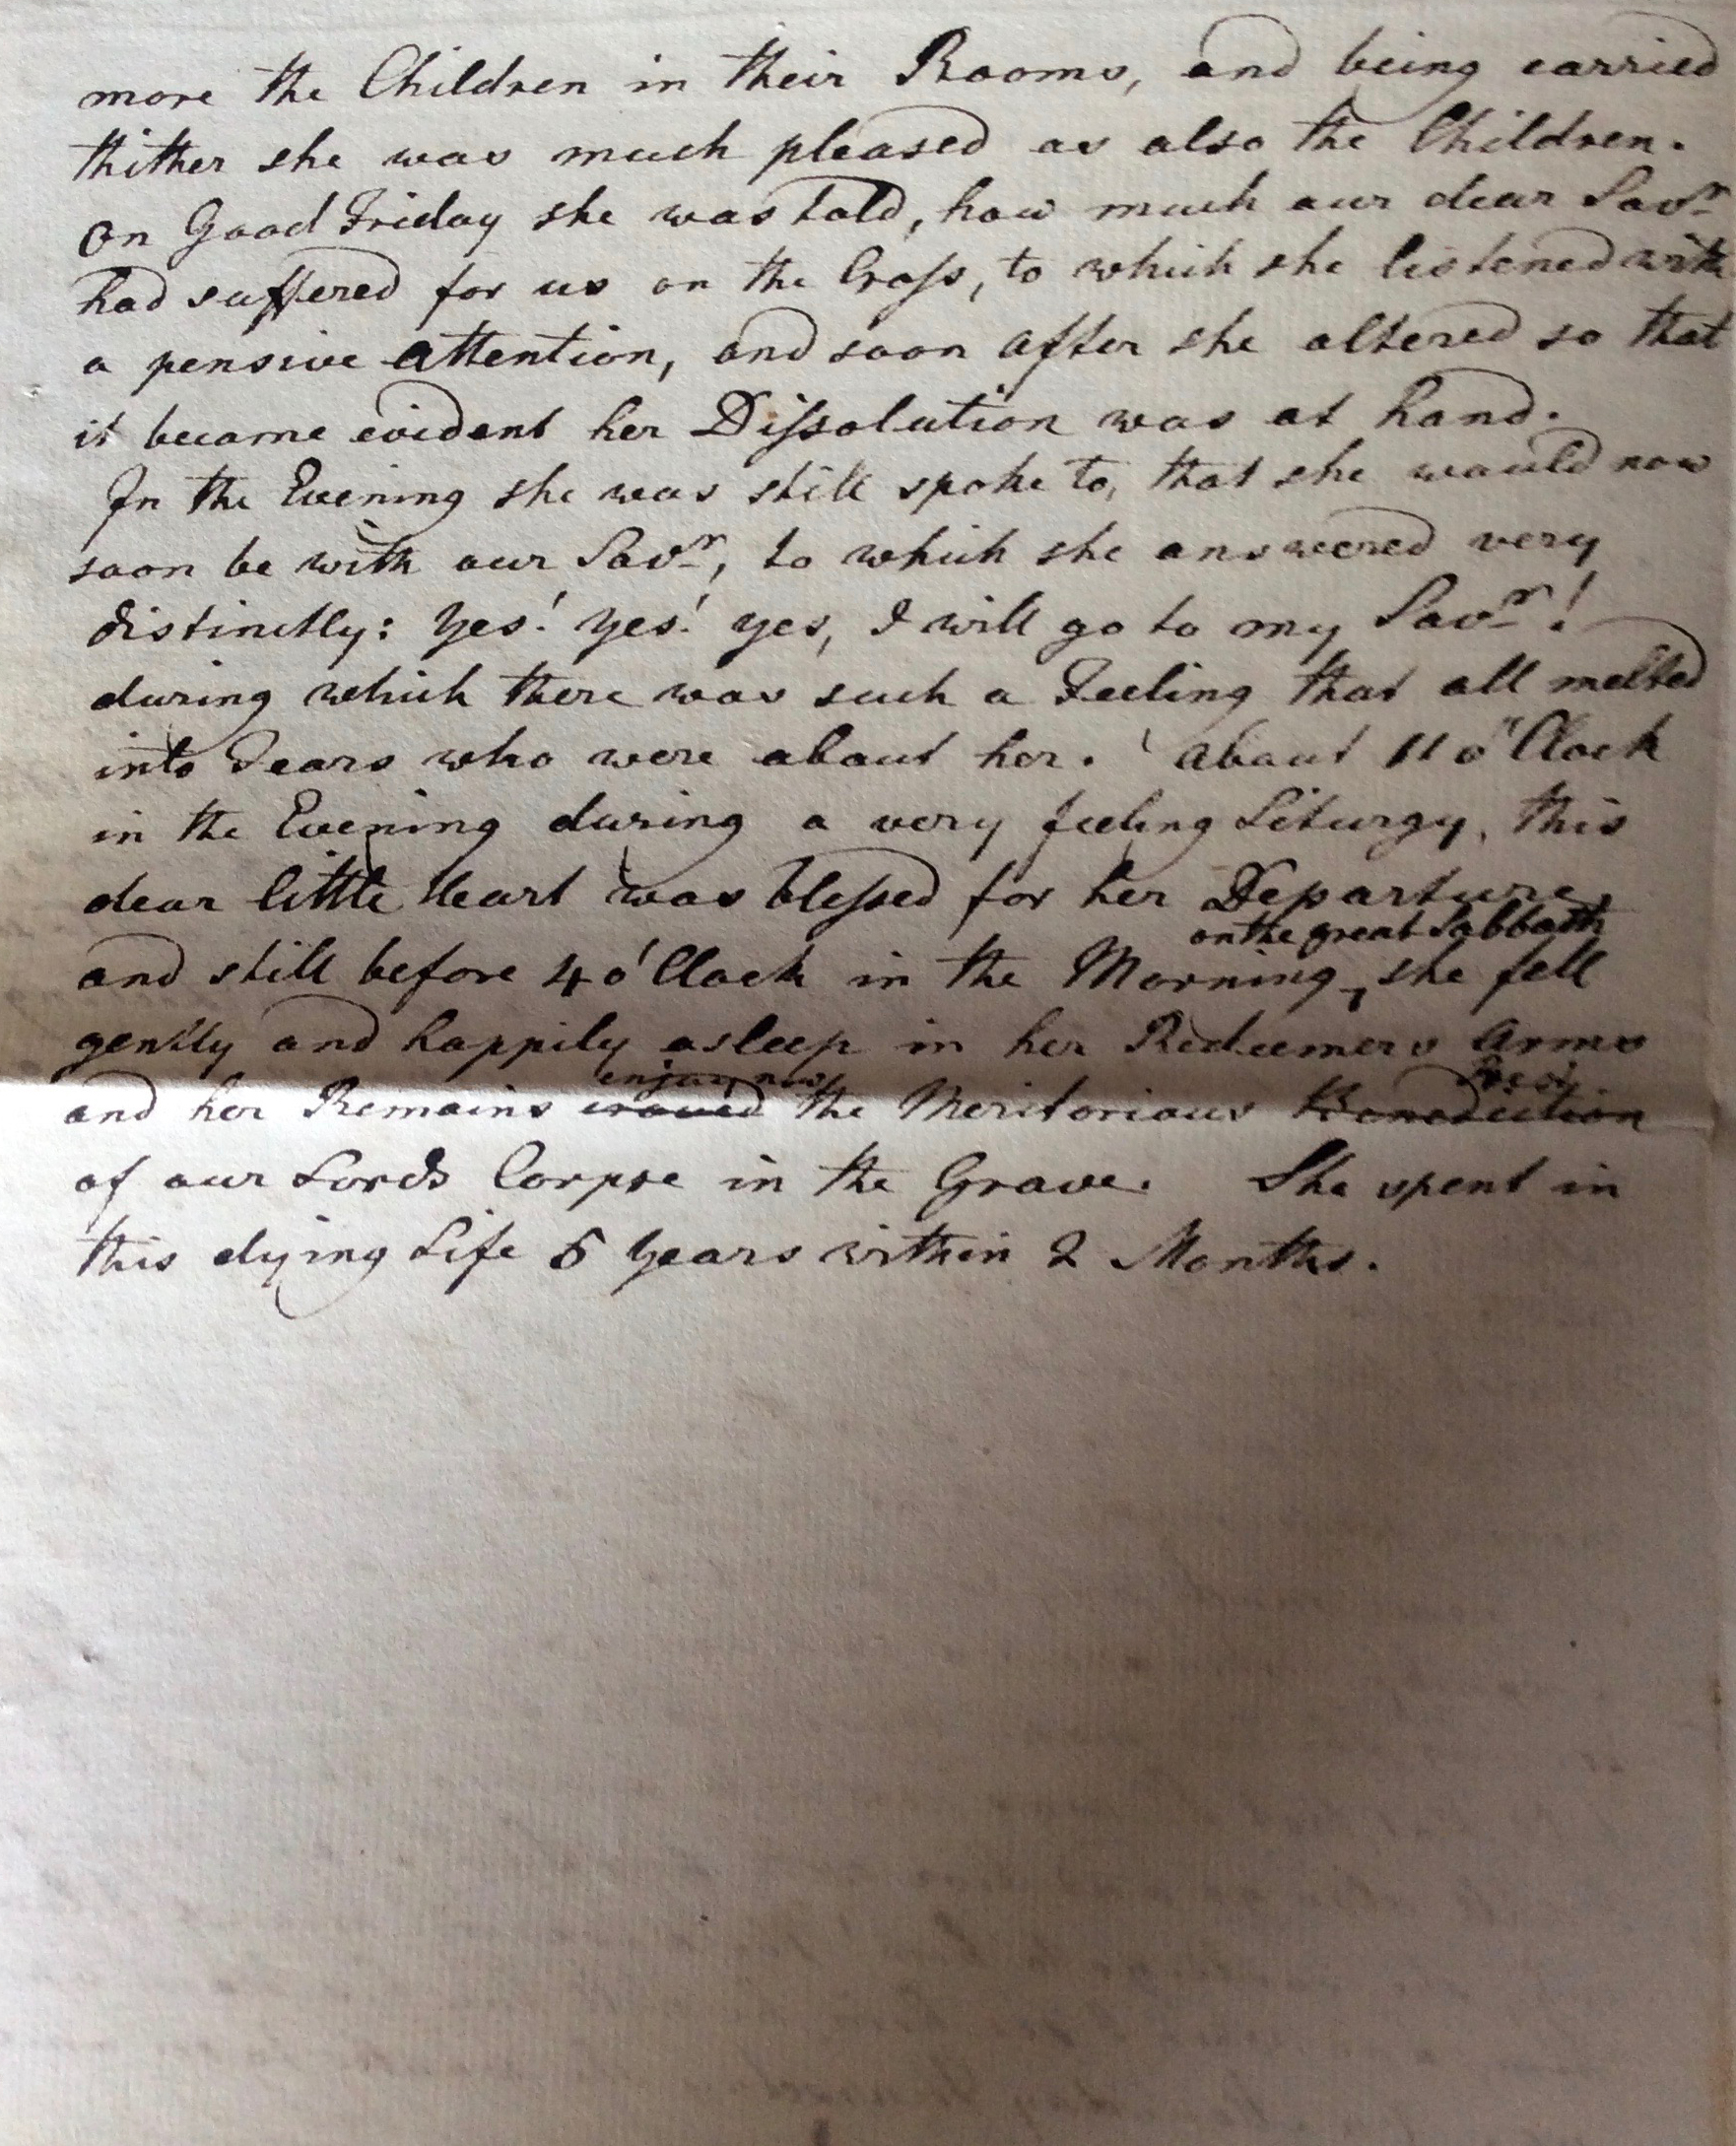 more the Children in their Rooms, and being carried
thither she was much pleased as also the Children.
On Good Friday she was told, how much our dear Savr
had suffered for us on the Croſs, to which she listened with
a pensive attention, and soon after she altered so that
it became evident her Diſsolution was at hand.
In the Evening she was still spoke to, that she would now
soon be with our Savr, to which she answered very
distinctly: Yes! Yes! yes, I will go to my Savr!
during which there was such a Feeling that all melted
into Tears who were about her. About 11 o'Clock
in the Evening during a very feeling Liturgy, this
dear little Heart was bleſsed for her Departure,
on the great Sabbath
and still before 4 o'Clock in the Morning, she fell
gently and happily asleep in her Redeemers Arms
enjoy now Rest
and her Remains craved the Meritorious Benediction
of our Lords Corpse in the Grave. She spent in
this dying Life 5 Years within 2 Months.